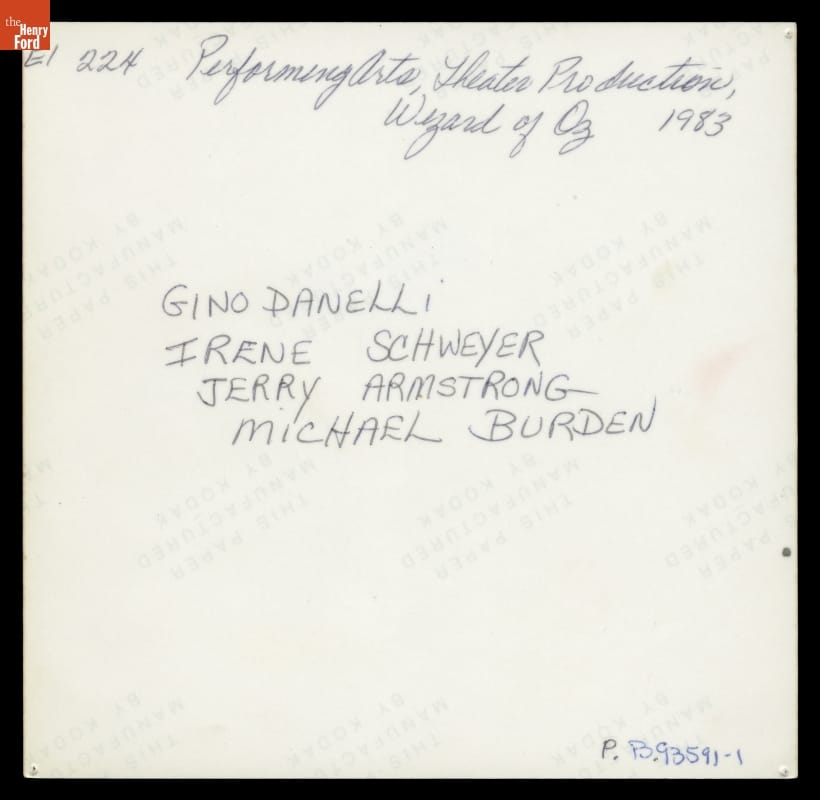 the
Henry
Ford
EI 224 Performing Arts, Theater Production,
Wizard of Oz 1983
GINO DANELLI
IRENE SCHWEYER
JERRY ARMSTRONG
MICHAEL BURDEN
THIS PAPER
MANUFACTURED
BY KODAK
P. B.93591-1